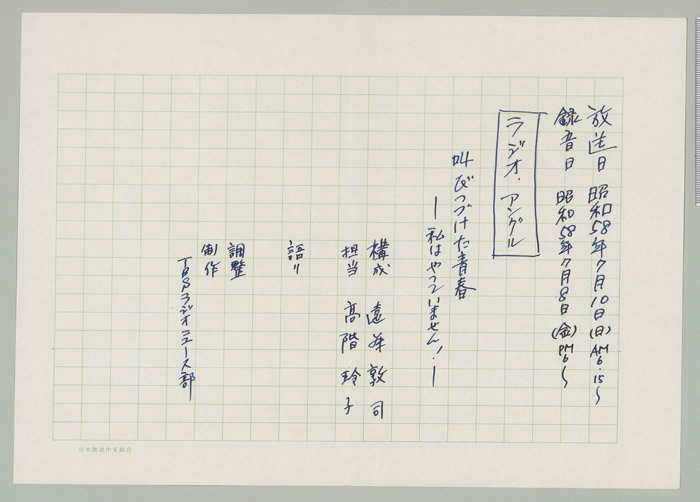 放送日 昭和58年7月10日(日)AM6.15〜
録音日 昭和58年7月8日(金)PM6〜
ラジオ・アングル
叫びつづけた青春
―私はやっていません!―
構成 遠藤敦司
担当 高階玲子
語り
調整
制作
TBSラジオニュース部
日本放送作家組合